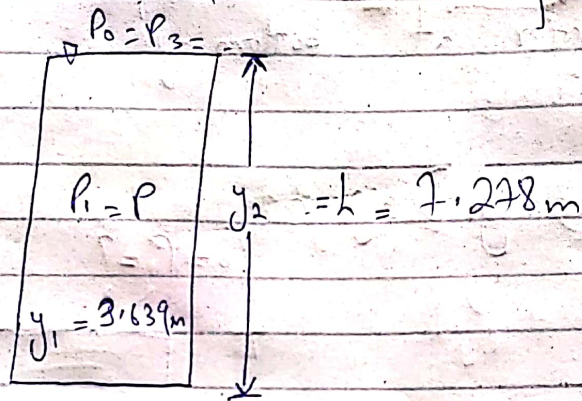 P₀ = P₃ =
P₁ = P
y₂ = h = 7.278 m
y₁ = 3.639m